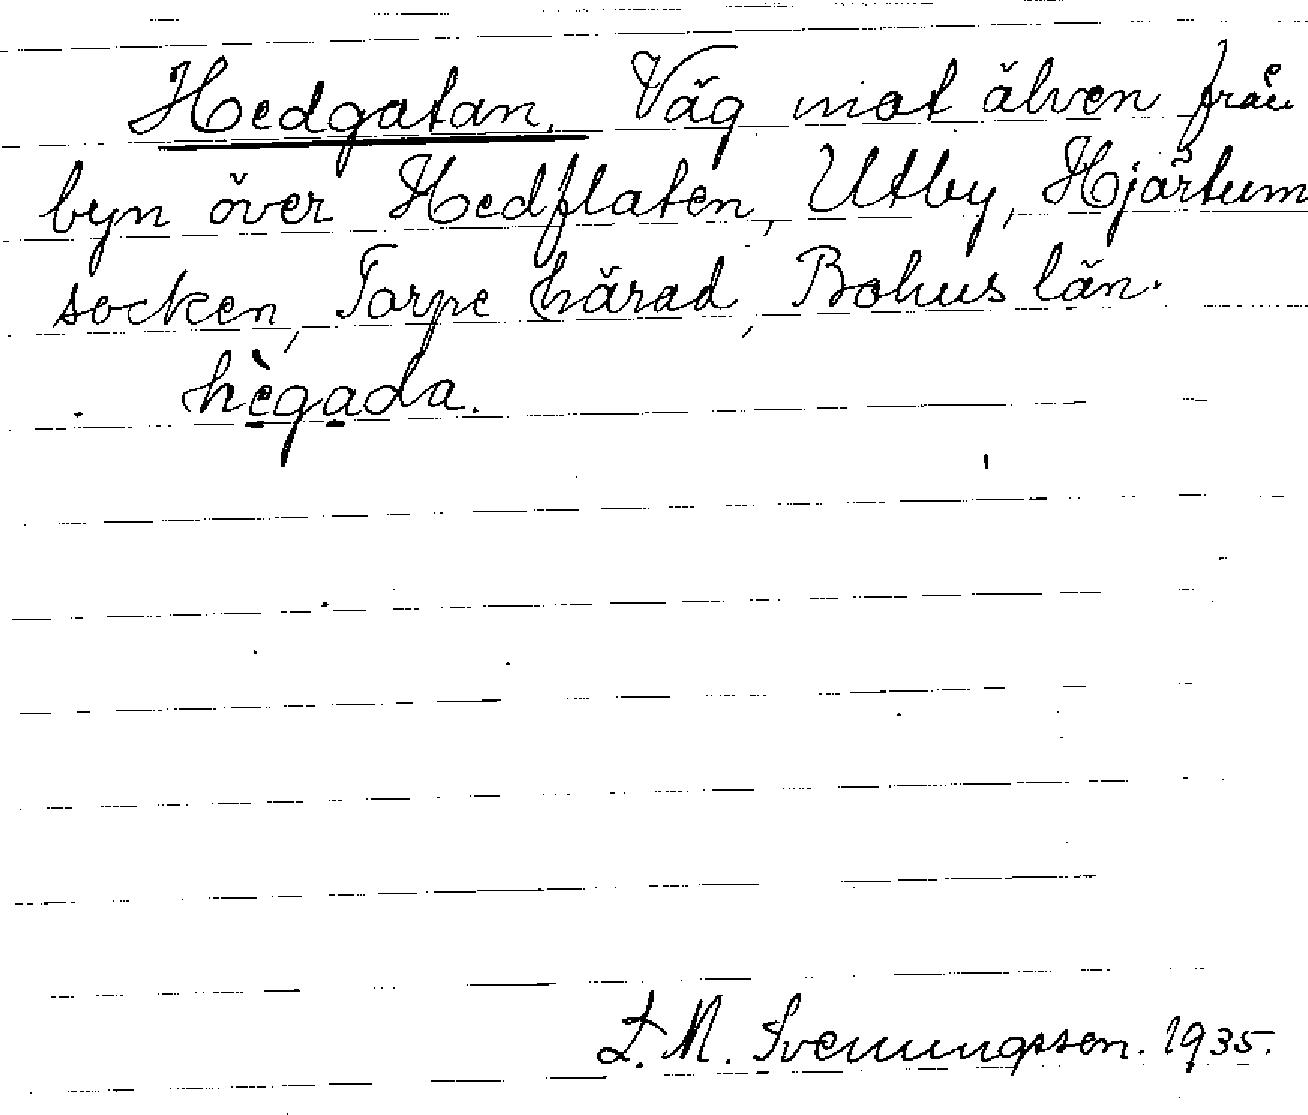 Hedgatan. Väg mot älven från
byn över Hedflaten, Utby, Hjärtum
socken, Torpe härad, Bohus län.
hègada.
L. M. Svenungsson. 1935.